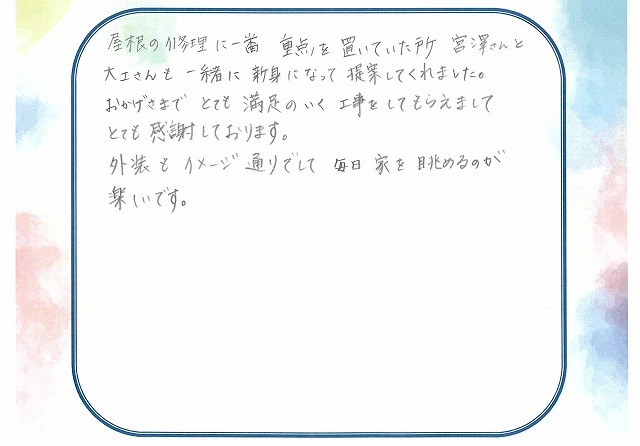 屋根の修理に一番 重点を置いていた所 宮澤さんと
大工さんも一緒に 親身になって提案してくれました。
おかげさまで とても 満足のいく 工事をしてもらえまして
とても 感謝しております。
外装も イメージ通りでして 毎日 家を眺めるのが
楽しいです。